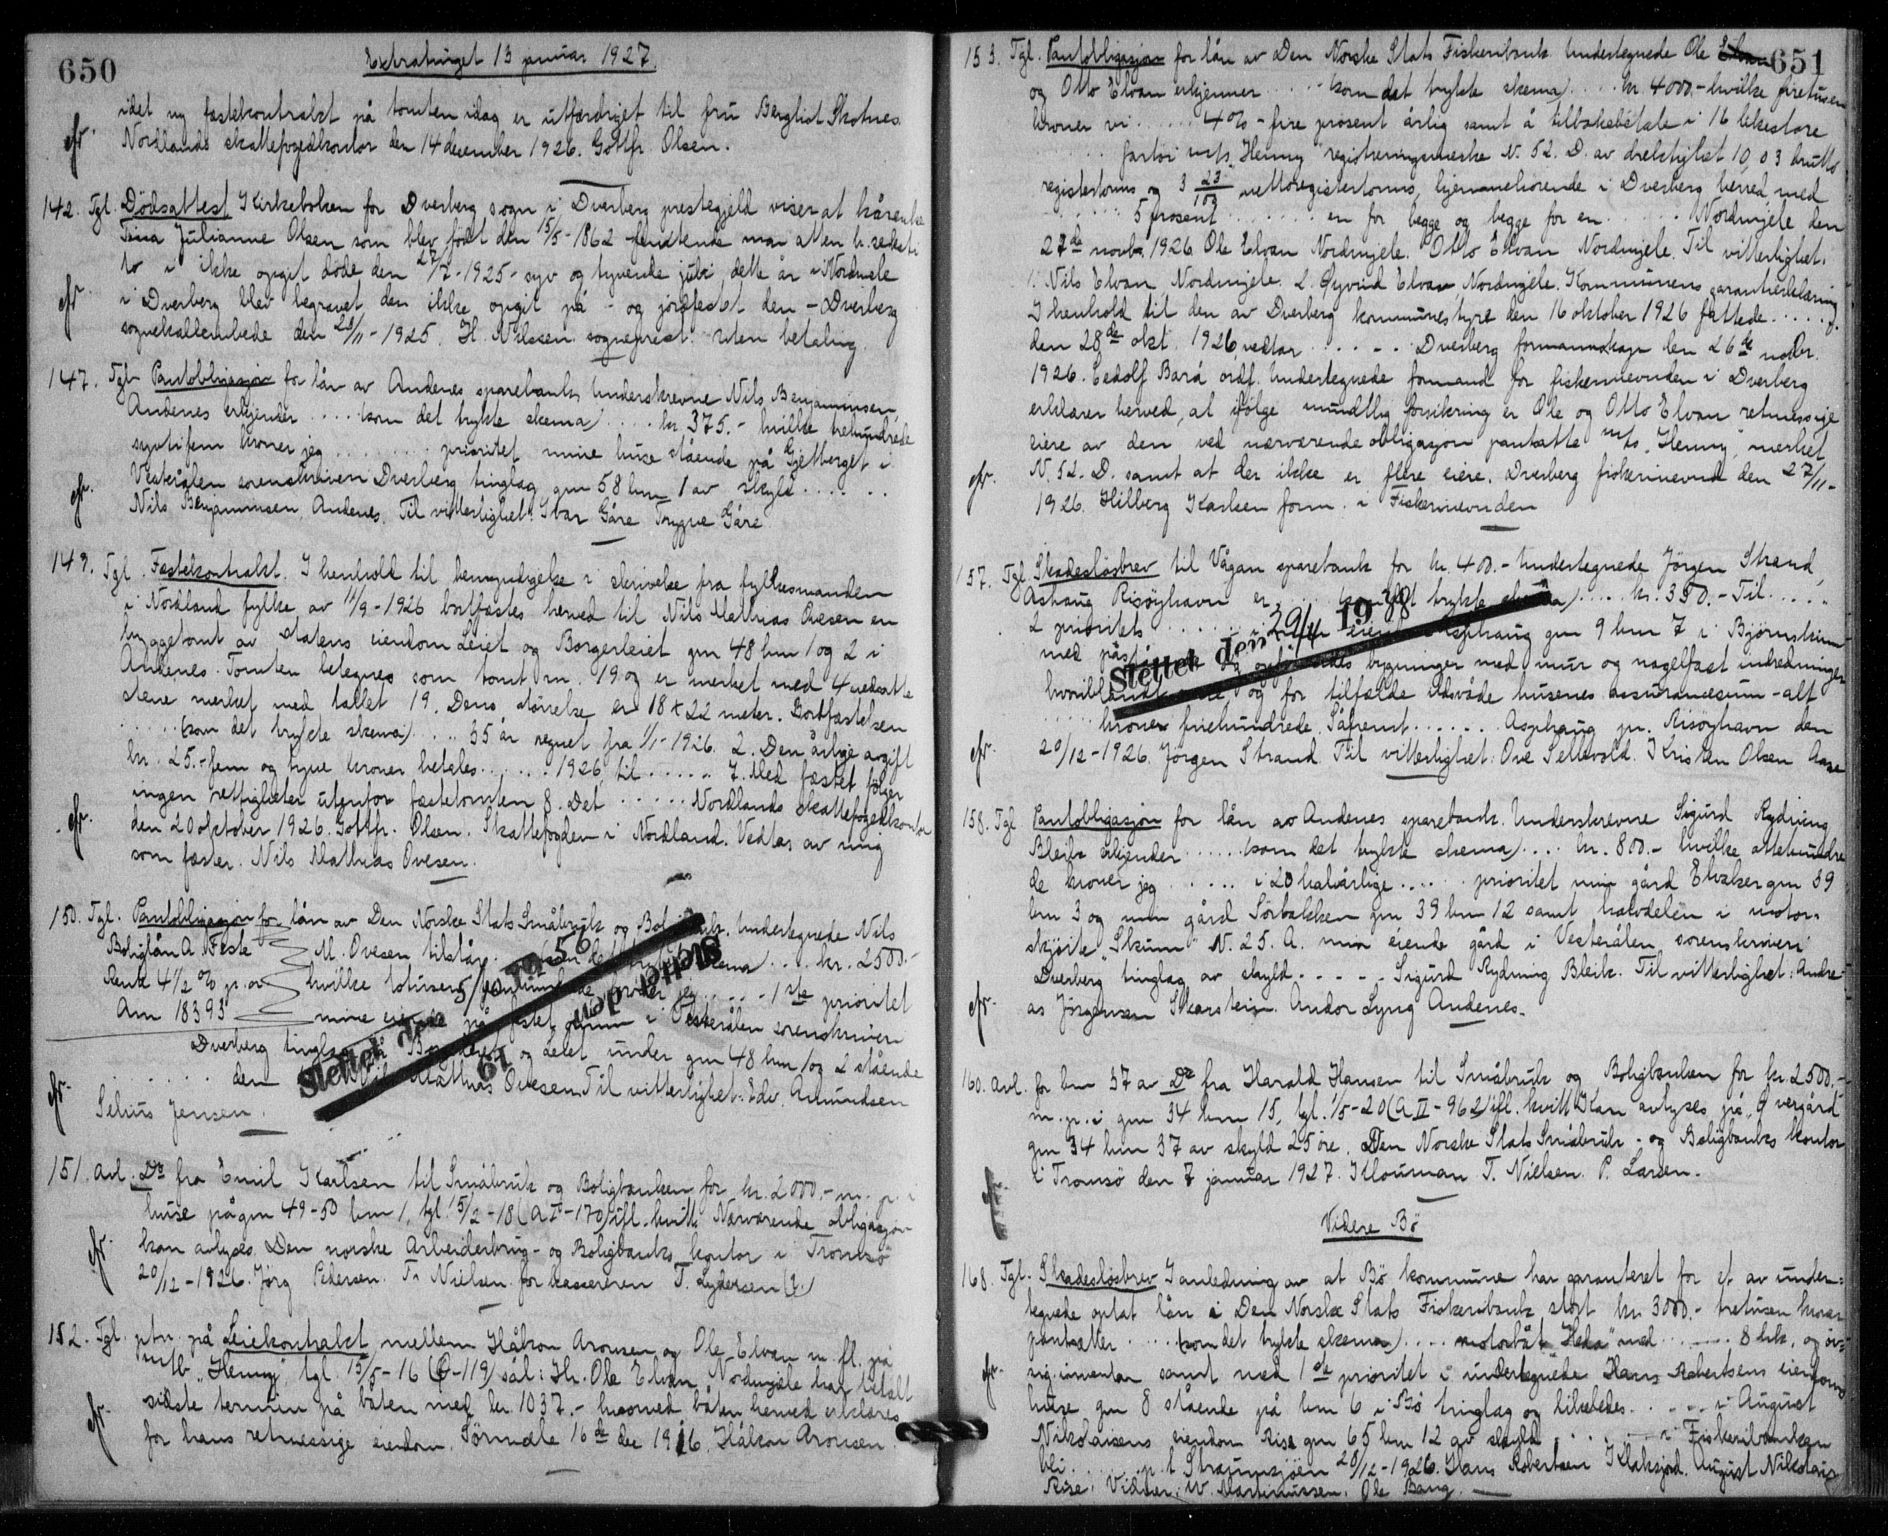 650
Extratinget 13 januar 1927.
idet ny festekontrakt på tomten idag er utfærdiget til fru Bergliot Skotnes.
Nordlands skattefogedkontor den 14 december 1926. Gottfr. Olsen.
142. Tgl. Dödsattest Kirkeboken for Dverberg sogn i Dverberg prestegjeld viser at kårenke
Trina Julianne Olsen som blev født den 15/5-1862 femtende mai atten h. seksti
to i ikke opgit döde den 27/7-1925- syv og tyvende juli dette år i Nordmele
i Dverberg blev begravet den ikke opgit på - og jordfestet den - Dverberg
sognekallembede den 29/11-1925. H. Nilssen sogneprest. Uten betaling.
147. Tgl. Pantobligasjon for lån av Andenes sparebank. Underskrevne Nils Benjaminsen,
Andenes erkjender ..... (som det trykte skema) ..... kr. 375.- hvilke trehundrede
syvtifem kroner jeg ......... prioritet mine huse stående på Gjetberget i
Vesterålen sorenskriveri Dverberg tinglag gnr 58 bnr 1 av skyld ......
Nils Benjaminsen, Andenes. Til vitterlighet: Ivar Gåre Trygve Gåre
149. Tgl. Festekontrakt. I henhold til bemyndigelse i skrivelse fra fylkesmanden
i Nordland fylke av 11/9-1926 bortfæstes herved til Nils Mathias Ovesen en
byggetomt av Statens eiendom Leiet og Borgerleiet gnr 48 bnr 1 og 2 i
Andenes. Tomten betegnes som tomt nr. 19 og er merket med 4 nedsatte
stene merket med tallet 19. Dens störrelse er 18 x 22 meter. Bortfæstelsen
..... (som det trykte skema) ..... 35 år regnet fra 1/1-1926. 2. Den årlige avgift
kr. 25.- fem og tyve kroner betales ...... 1926 til ...... 7. Med fæstet følger
ingen rettigheter utenfor fæstetomten 8. Det ..... Nordlands skattefogedkontor
den 20 oktober 1926. Gottfr. Olsen. Skattefogden i Nordland. Vedtas av mig
som fæster. Nils Mathias Ovesen.
150. Tgl. Pantobligasjon for lån av Den Norske Stats Småbruk og Boligbank. Undertegnede Nils
Boliglån A Feste M. Ovesen tilstår ... (som det trykte skema) .... kr. 2500.-
Rente 4 1/2 % p. a. hvilke totusen femhundrede kroner jeg ..... 1ste prioritet
Ann 18393 mine eiende på festet grunn i Vesterålen sorenskriveri
Dverberg tinglag i Borgerleiet og Leiet under gnr 48 bnr 1 og 2 stående
...... den Nils Mathias Ovesen Til vitterlighet: Edv. Amundsen
Selius Jensen.
Slettet den 5/10 1956
Slettet den 19
151. Avl. Do fra Emil Karlsen til Småbruk og Boligbanken for kr. 2000,- m. p. i
huse på gnr 49-50 bnr 1, tgl. 15/2-18 (A I-170) ifl. kvitt Nærværende obligasjon
kan avlyses. Den norske Arbeiderbruk- og Boligbanks kontor i Tromsö
20/12-1926. Jörg Pedersen. Fr Nielsen for kassereren T. Lydersen (?)
152. Tgl. ptn. på Leiekontrakt mellem Håkon Aronsen og Ole Elvan m. fl. på
m/b "Henny", tgl. 15/5-16 (C-119) sål: Hr. Ole Elvan Nordmjele har betalt
sidste termin på båten med kr. 1037.- hvormed båten herved erklæres
for hans retmessige eiendom. Sörmele 16de dec 1926. Håkon Aronsen.
651
153. Tgl. Pantobligasjon for lån av Den Norske Stats Fiskeribank Undertegnede Ole Elvan
og Otto Elvan erkjenner ..... (som det trykte skema) .... kr. 4000.- hvilke firetusen
kroner vi ...... 4% - fire prosent årlig samt å tilbakebetale i 16 likestore
.. fartöi m/s "Henny" registreringsmerke N. 52. D. av drektighet 10,03 brutto
registertonns og 3 23/100 nettoregistertonns, hjemmehörende i Dverberg herred, med
...... 5 prosent ....... en for begge og begge for en ...... Nordmjele den
27de novbr. 1926 Ole Elvan Nordmjele. Otto Elvan Nordmjele. Til vitterlighet:
1. Nils Elvan Nordmjele. 2. Öyvind Elvan Nordmjele. Kommunens garantierklæring
I henhold til den av Dverberg kommunestyre den 16 oktober 1926 fattede ......
den 28de okt. 1926, vedtar ...... Dverberg formannskap den 26de novbr.
1926. Eedolf Barå ordf. Undertegnede formand for fiskerinevnden i Dverberg
erklærer herved, at ifölge mundtlig forsikring er Ole og Otto Elvan retmessige
eiere av den ved nærværende obligasjon pantsatte m/s "Henny", merket
N. 52. D. samt at der ikke er flere eiere. Dverberg fiskerinevnd den 27/11-
1926. Hilberg Karlsen form. i Fiskerinevnden
157. Tgl. Skadeslösbrev til Vågan sparebank for kr. 400.- Undertegnede Jörgen Strand,
Asphaug Risöyhavn er ..... (som det trykte skema) .... kr. 350.- Til .....
2 prioritets ....... i min eiendom Asphaug gnr 9 bnr 7 i Björnskinn
med påstående og opförendes bygninger med mur og nagelfast indredninger
hvoriblandt ... og for tilfælde ildsvåde husenes assurancesum - alt
...... kroner firehundrede. Såfremt ...... Asphaug pr. Risöyhavn den
20/12-1926. Jörgen Strand. Til vitterlighet: Ove Settevold. Kristen Olsen Aase
Slettet den 29/4 1938
158. Tgl. Pantobligasjon for lån av Andenes sparebank. Underskrevne Sigurd Rydning
Bleik erkjender ...... (som det trykte skema) .... kr. 800.- hvilke ottehundre
de kroner jeg ...... i 20 halvårlige ...... prioritet min gård Elvaker gnr 39
bnr 3 og min gård Sörbakken gnr 39 bnr 12 samt halvdelen i motor-
sköite "Skum" N. 25. A. min eiende gård i Vesterålen sorenskriveri
Dverberg tinglag av skyld ..... Sigurd Rydning Bleik. Til vitterlighet: Andre-
as Jörgensen Skarstein. Andor Lyng Andenes.
160. Avl. for bnr 37 av Do fra Harald Hansen til Småbruk og Boligbanken for kr 2500.-
m. p. i gnr 34 bnr 15, tgl. 1/5-20 (A II-962) ifl. kvitt Kan avlyses på, Övergård
gnr 34 bnr 37 av skyld 25 öre. Den Norske Stats Småbruk- og Boligbanks kontor
i Tromsö den 7 januar 1927. Klouman T. Nielsen. P. Larsen.
Videre Bö
168. Tgl. Skadeslösbrev I anledning av at Bö kommune har garanteret for et av under-
tegnede optat lån i Den Norske Stats Fiskeribank stort kr. 3000.- tretusen kroner
pantsetter ..... (som det trykte skema) .... motorbåt "Heda" med ...... 8 hk. og öv-
rig inventar samt med 1ste prioritet i undertegnede Hans Robertsens eiendom
huse gnr 8 stående på bnr 6 i Bö tinglag og tilbehör ..... i August
Nikolaisens eiendom Rise gnr 65 bnr 12 av skyld ...... i Fiskeribanken
bli ...... p. t. Straumsjöen 20/12-1926. Hans Robertsen Klaksjord. August Nikolaisen
Rise. Vidner: W. Martinussen. Ole Bang.